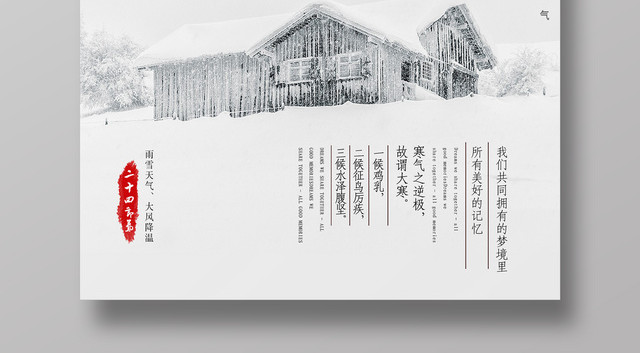 气
我们共同拥有的梦境里
所有美好的记忆
Dreams we share together - all
good memoriesDreams we
share together - all good memories
寒气之逆极，
故谓大寒。
一候鸡乳，
二候征鸟厉疾，
三候水泽腹坚。
DREAMS WE SHARE TOGETHER - ALL
GOOD MEMORIESDREAMS WE
SHARE TOGETHER - ALL GOOD MEMORIES
雨雪天气、大风降温
二十四节气